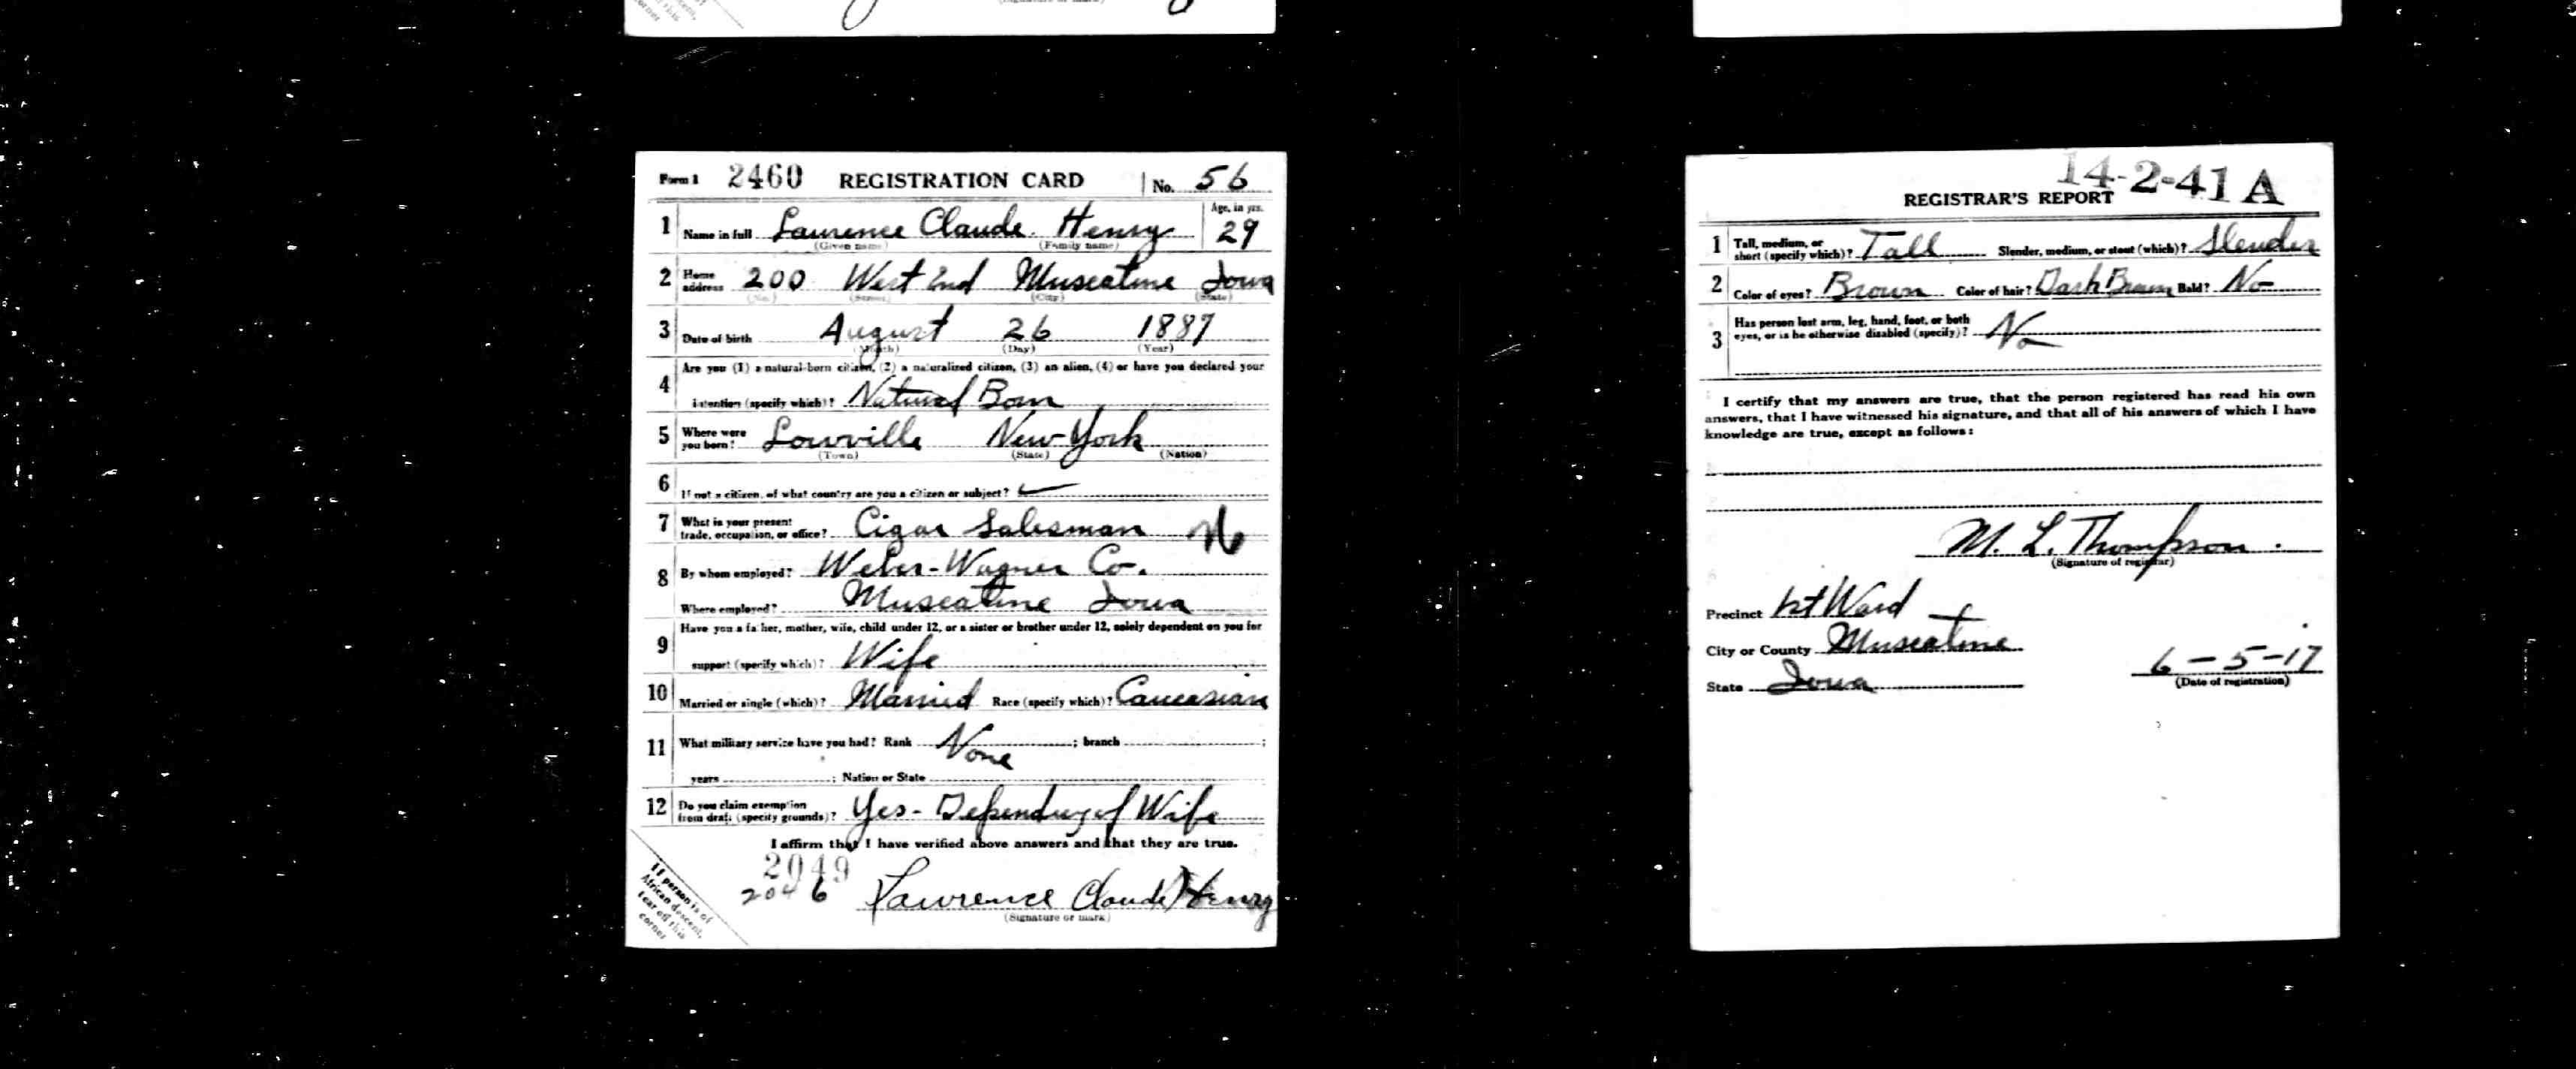 corner
this
cent,
(Signature or mark)
Form 1 2460 REGISTRATION CARD No. 56
1 Name in full Laurence Claude Henry Age, in yrs. 29
(Given name) (Family name)
2 Home address 200 West 2nd Muscatine Iowa
(No.) (Street) (City) (State)
3 Date of birth August 26 1887
(Month) (Day) (Year)
4 Are you (1) a natural-born citizen, (2) a naturalized citizen, (3) an alien, (4) or have you declared your
intention (specify which)? Natural Born
5 Where were you born? Lowville New York
(Town) (State) (Nation)
6 If not a citizen, of what country are you a citizen or subject?
7 What is your present trade, occupation, or office? Cigar Salesman
8 By whom employed? Weber-Wagner Co.
Where employed? Muscatine Iowa
9 Have you a father, mother, wife, child under 12, or a sister or brother under 12, solely dependent on you for
support (specify which)? Wife
10 Married or single (which)? Married Race (specify which)? Caucasian
11 What military service have you had? Rank None ; branch ;
years ; Nation or State
12 Do you claim exemption from draft (specify grounds)? Yes - of Wife
I affirm that I have verified above answers and that they are true.
2049
2046 Lawrence Claude Henry
(Signature or mark)
If person is of
African descent,
tear off this
corner
14-2-41 A
REGISTRAR'S REPORT
1 Tall, medium, or short (specify which)? Tall Slender, medium, or stout (which)? Slender
2 Color of eyes? Brown Color of hair? Dark Brown Bald? No
3 Has person lost arm, leg, hand, foot, or both
eyes, or is he otherwise disabled (specify)? No
I certify that my answers are true, that the person registered has read his own
answers, that I have witnessed his signature, and that all of his answers of which I have
knowledge are true, except as follows:
M. L. Thompson.
(Signature of registrar)
Precinct 1st Ward
City or County Muscatine
State Iowa
6-5-17
(Date of registration)